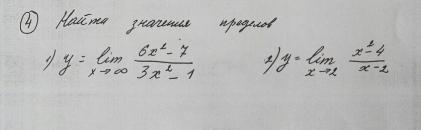 ④ Найти значения пределов
1) y = lim x→∞ (6x² - 7)/(3x² - 1) 2) y = lim x→2 (x² - 4)/(x - 2)